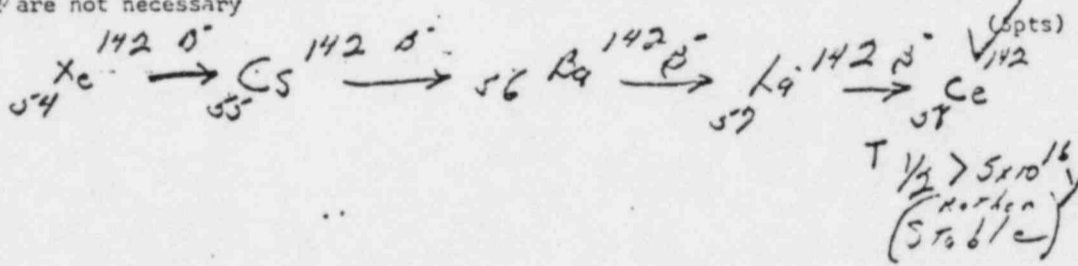 are not necessary
(5pts)
54 Xe 142 β- → 55 Cs 142 β- → 56 Ba 142 β- → 57 La 142 β- → 58 Ce 142
T 1/2 > 5x10^16 y
(rather
Stable)